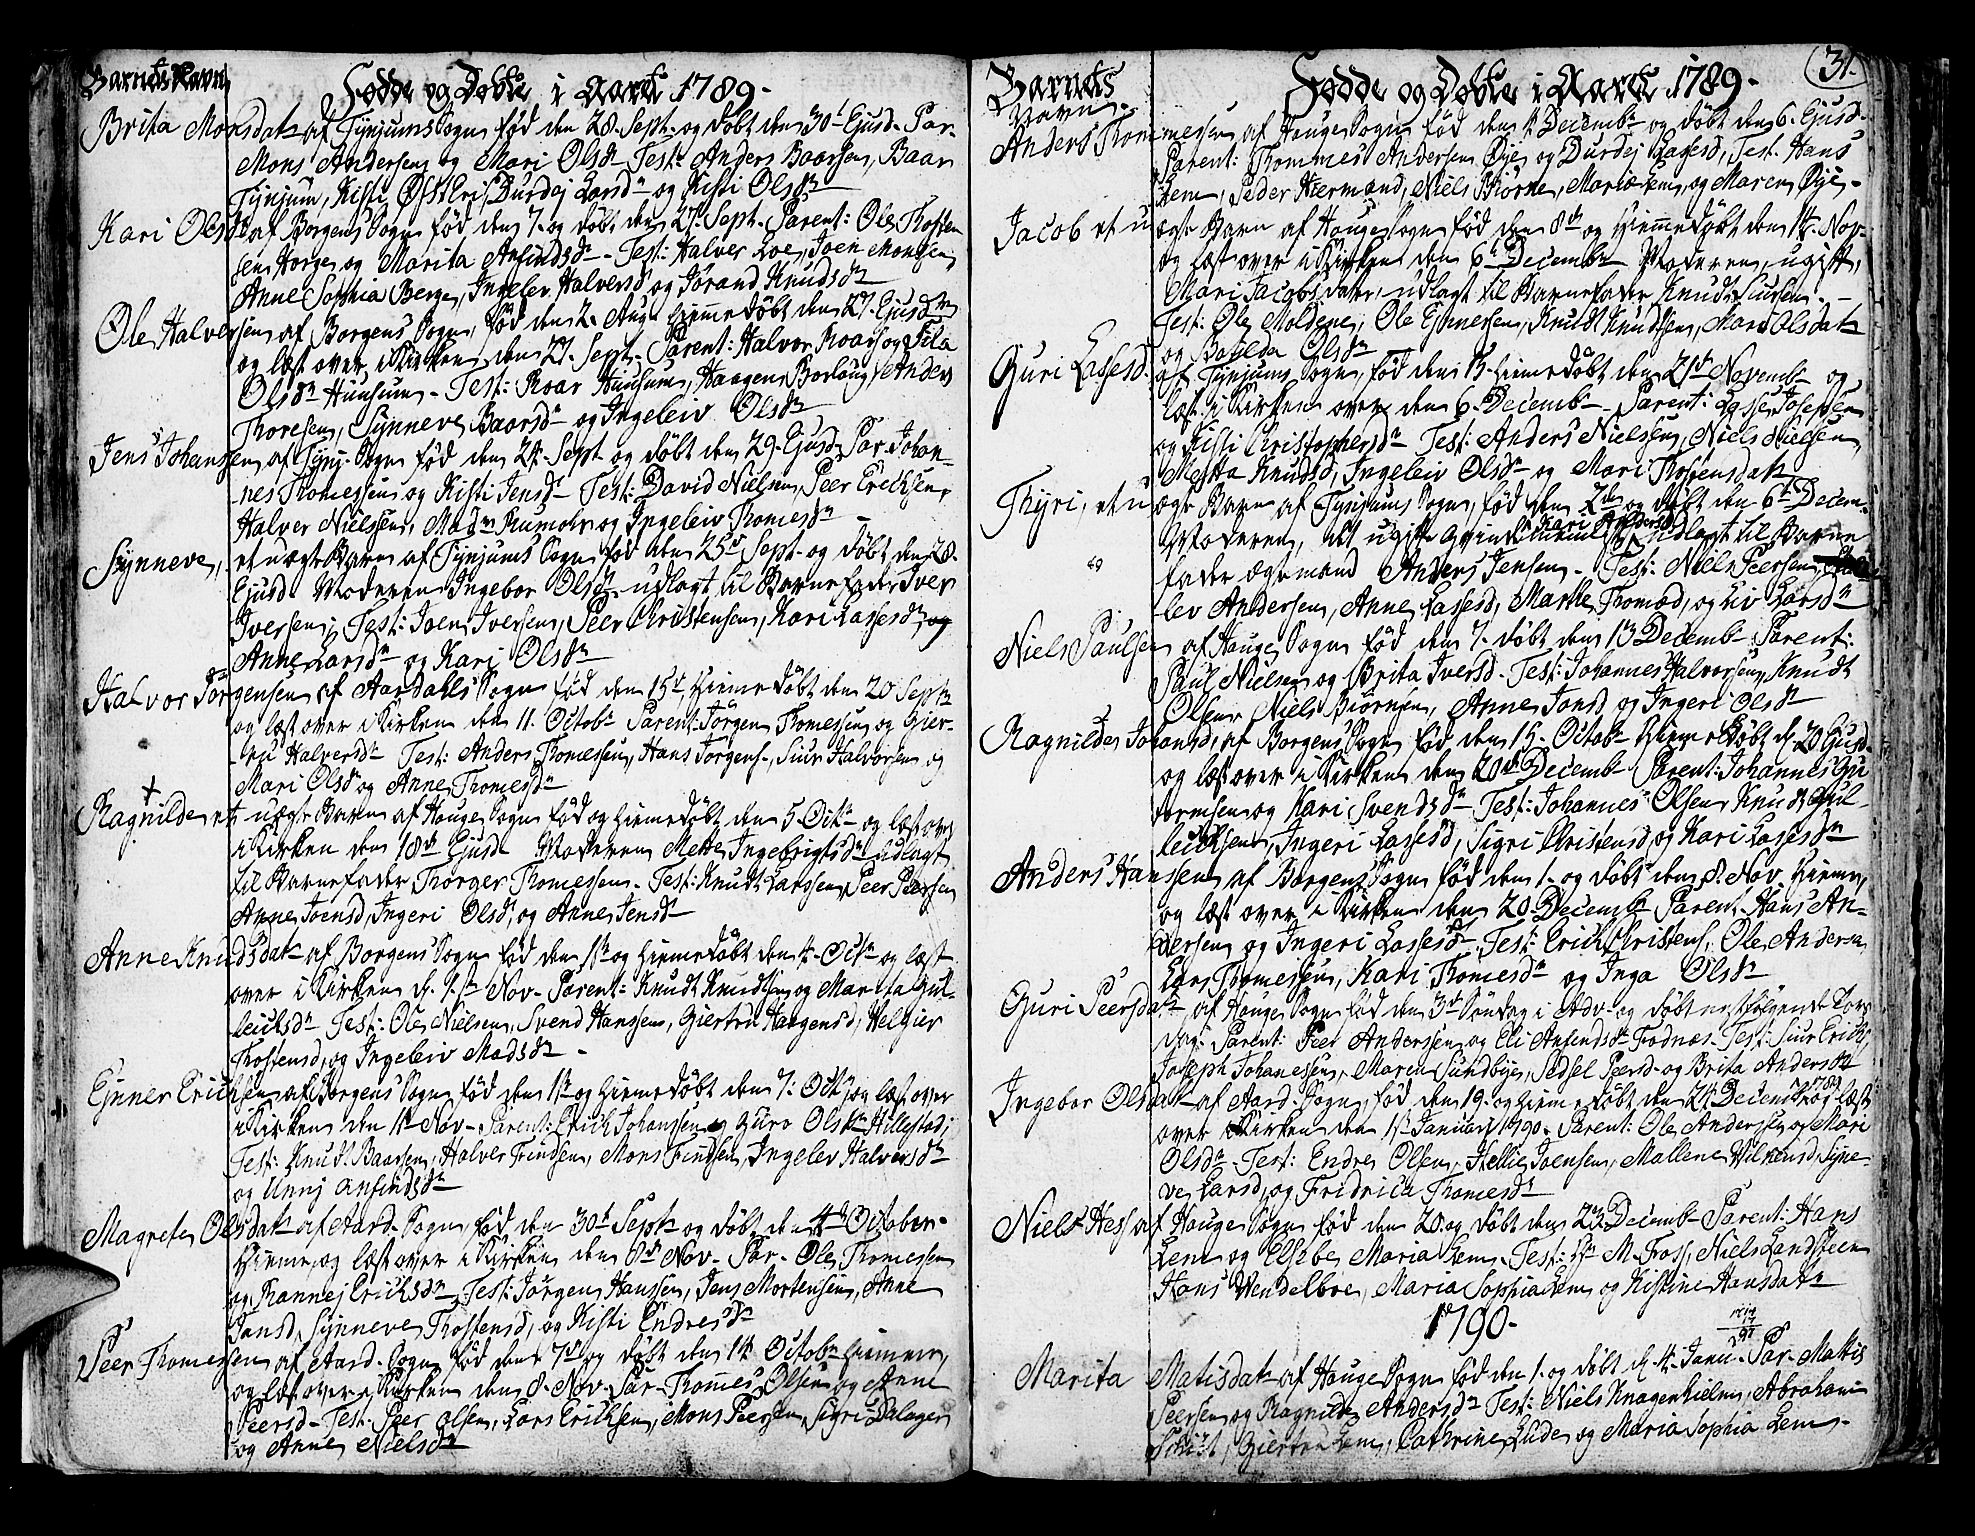 Barnets Navn
Fødde og Døbte i Aaret 1789.
Brita Monsdatr af Tynjums Sogn fød den 28. Sept. og døbt den 30t Ejusd. Par-
Mons Andersen og Mari Olsdr Test: Anders Baarsen, Baar
Tynjum, Kisti Østteri, Durdej Larsdr og Kisti Olsdr
Kari Olsdr af Borgens Sogn fød den 7. og døbt den 27. Sept. Parent: Ole Thosten
sen Horge og Marita Anfindsdr. Test: Halver Loe, Joen Monsen
Anne Sophia Berge, Ingelev Halversd og Jorand Knudsdr
Ole Halversen af Borgens Sogn, fød den 2. Aug. hiemmedøbt den 27. Ejusdem
og læst over i Kirken den 27. Sept. Parent: Halvor Roars og Sila
Olsdr Hunsum. Test: Roar Hunsum, Haagen Borlaug, Anders
Thoresen, Synneve Baarsdr og Ingeleiv Olsdr
Jens Johansen af Tynj. Sogn fød den 24. Sept og døbt den 29. Ejusd. Par. Johan-
nes Thomessen og Kisti Jensdr Test: David Nielsen, Peer Erichsen,
Halver Nielsen, Madme Rumohr og Ingeleiv Thomesdr
Synneve, et uægte Barn af Tynjums Sogn fød den 25de Sept. og døbt den 28.
Ejusd. Moderen Ingebor Olsdr udlagt til Barnefader Iver
Iversen; Test: Joen Iversen, Peer Christensen, Kari Lassesdr, og
Anne Larsdr og Kari Olsdr
Halvor Jørgensen af Aardahls Sogn fød den 15de, hiemmedøbt den 20 Septr
og læst over i Kirken den 11. Octobr Parent: Jørgen Thomessen og Gier-
tru Halversdr Test: Anders Thomessen, Hans Jørgens., Siur Halvorsen og
Mari Olsdr og Anne Thomesdr
+
Ragnilde et uægte Barn af Hauge Sogn fød og hiemmedøbt den 5 Octr og læst over
i Kirken den 18de Ejusd. Moderen Mette Ingebrigtsdr udlagt
til Barnefader Thorger Thomessen. Test: Knudt Larssen, Peer Peersen
Anne Joensd, Ingeri Olsd, og Anne Jensdr
Anne Knudsdatr af Borgens Sogn fød den 1st og hiemmedøbt den 4. Octr og læst
over i Kirken d. 1.st Nov. Parent: Knudt Knudtsen og Marita Gul-
leiksdr Test: Ole Nielsen, Svend Hanssen, Giertru Haagensd, Helgier
Thostensd, og Ingeleiv Madsdr.
Ejnner Erichsen af Borgens Sogn fød den 1st og hiemmedøbt den 7. Octr og læst over
i Kirken den 1st Nov. Parent: Erich Johanssen og Guro Olsdr Hillestad;
Test: Knudt Baarsen, Halver Trindsen, Mons Findsen, Ingelev Halversdr
og Unnj Anfindsdr
Magrete Olsdatr af Aard. Sogn, fød den 30t Septr og døbt den 4de October-
hiemme, og læst over i Kirken den 8de Nov. Par. Ole Thomessen
og Rannej Erichsdr Test: Jørgen Hanssen, Jens Mortensen, Anne
Jansd, Synneve Thostensd, og Kisti Endresdr
Peer Thomessen af Aard. Sogn fød den 7de og døbt den 14 Octobr hiemme,
og læst over i Kirken den 8. Nov. Par. Thomes Olsen og Anne
Peersd. Test. Peer Olsen, Lars Erichsen, Mons Peersen, Sigri Dalager
og Anne Nielsdr
31.
Barnets Navn.
Fødde og Døbte i Aaret 1789.
Anders Thommessen af Hauge Sogn fød den 4 Decembr og døbt den 6. Ejusd.
Parent: Thommes Andersen Øye og Durdej Lassesd, Test. Hans
Lem, Peder Hiermand, Niels Biørne, Maria Lem, og Maren Øye.
Jacob et uægte Barn af Hauge Sogn fød den 8de og hiemmedøbt den 14. Nov.
og læst over i Kirken den 6t Decembr Moderen, ugift,
Mari Jacobsdatr, udlagt til Barnefader Knudt Siursen.
Test: Ole Moldene, Ole Ejnnersen, Knudt Knudtsen, Mari Olsdatr
og Botilda Olsdr
Guri Lassesd. af Tynjums Sogn, fød den 13. hiemmedøbt den 21de Novembr og
læst i Kirken over den 6. Decembr. Parent: Lasse Josephsen
og Kisti Christophersdr Test: Anders Nielsen, Niels Nielsen,
Metta Knudsd, Ingeleiv Olsdr og Mari Thostensdatr
Thyri, et uægte Barn af Tynjums Sogn, fød den 2den og døbt den 6te Decem-
Moderen, et ugift Qvindemennske Kari Andersd. udlagt til Barne
fader ægtemand Anders Jensen. Test: Niels Peersen,
lev Andersen, Anne Lassesd, Marthe Thomæd, og Liv Larsdr
Niels Paulsen af Hauge Sogn fød den 7. døbt den 13 Decembr. Parent:
Paul Nielsen og Brita Iversd. Test: Johannes Halvorsen, Knudt
Olsen, Niels Biørnsen, Anne Jonsd, og Ingeri Olsdr
Ragnilde Johansd, af Borgens Sogn fød den 15. Octobr hiemmedøbt d. 20 Ejusd.
og læst over i Kirken den 20de Decembr Parent: Johannes Gu
tormsen og Kari Svendsdr. Test: Johannes Olsen, Knudt Gul-
leichsen, Ingeri Lassesd, Sigri Christensd, og Kari Lassesdr
Anders Hanssen af Borgens Sogn fød den 1. og døbt den 8. Nov. hiemme,
og læst over i Kirken den 20. Decembr Parent. Hans An-
dersen og Ingeri Lassesdr. Test: Erich Christens., Ole Anders.
Lars Thomessen, Kari Thomesdr og Inga Olsdr
Guri Peersdatr af Hauge Sogn fød den 3de Søndag i Adv. og døbt nestfølgende Tors
dag. Parent: Peer Anderssen og Eli Anfindsdr Frodnæs. Test: Siur Erichs.
Joseph Johanessen, Maren Sundbye, Sidsel Peersd. og Brita Andersdr
Ingebor Olsdatr af Aard. Sogn, fød den 19. og hiemmedøbt den 24. Decembr 1789 og læst
over i Kirken den 1st Januarj 1790. Parent: Ole Anderssen og Mari
Olsdr. Test: Endre Olsen, Hellie Joensen, Mallene Wilkensd, Syne-
ve Larsd, og Fridrica Thomesdr
Niels Hess af Hauge Sogn fød den 20. og døbt den 23. Decembr Parent: Hans
Lem og Elsebe Maria Lem. Test: Hr M. Foss, Niels Landsteen
Hans Wendelboe, Maria Sophia Lem og Kistine Hansdatr
1790.
Marita Matisdatr af Hauge Sogn fød den 1. og døbt d. 4. Janu. Par. Mattis
Peersen og Ragnilde Andersdr Test: Niels Knagenhielm, Abraham
Schut, Giertru Lem, Cathrine Lude og Maria Sophia Lem.